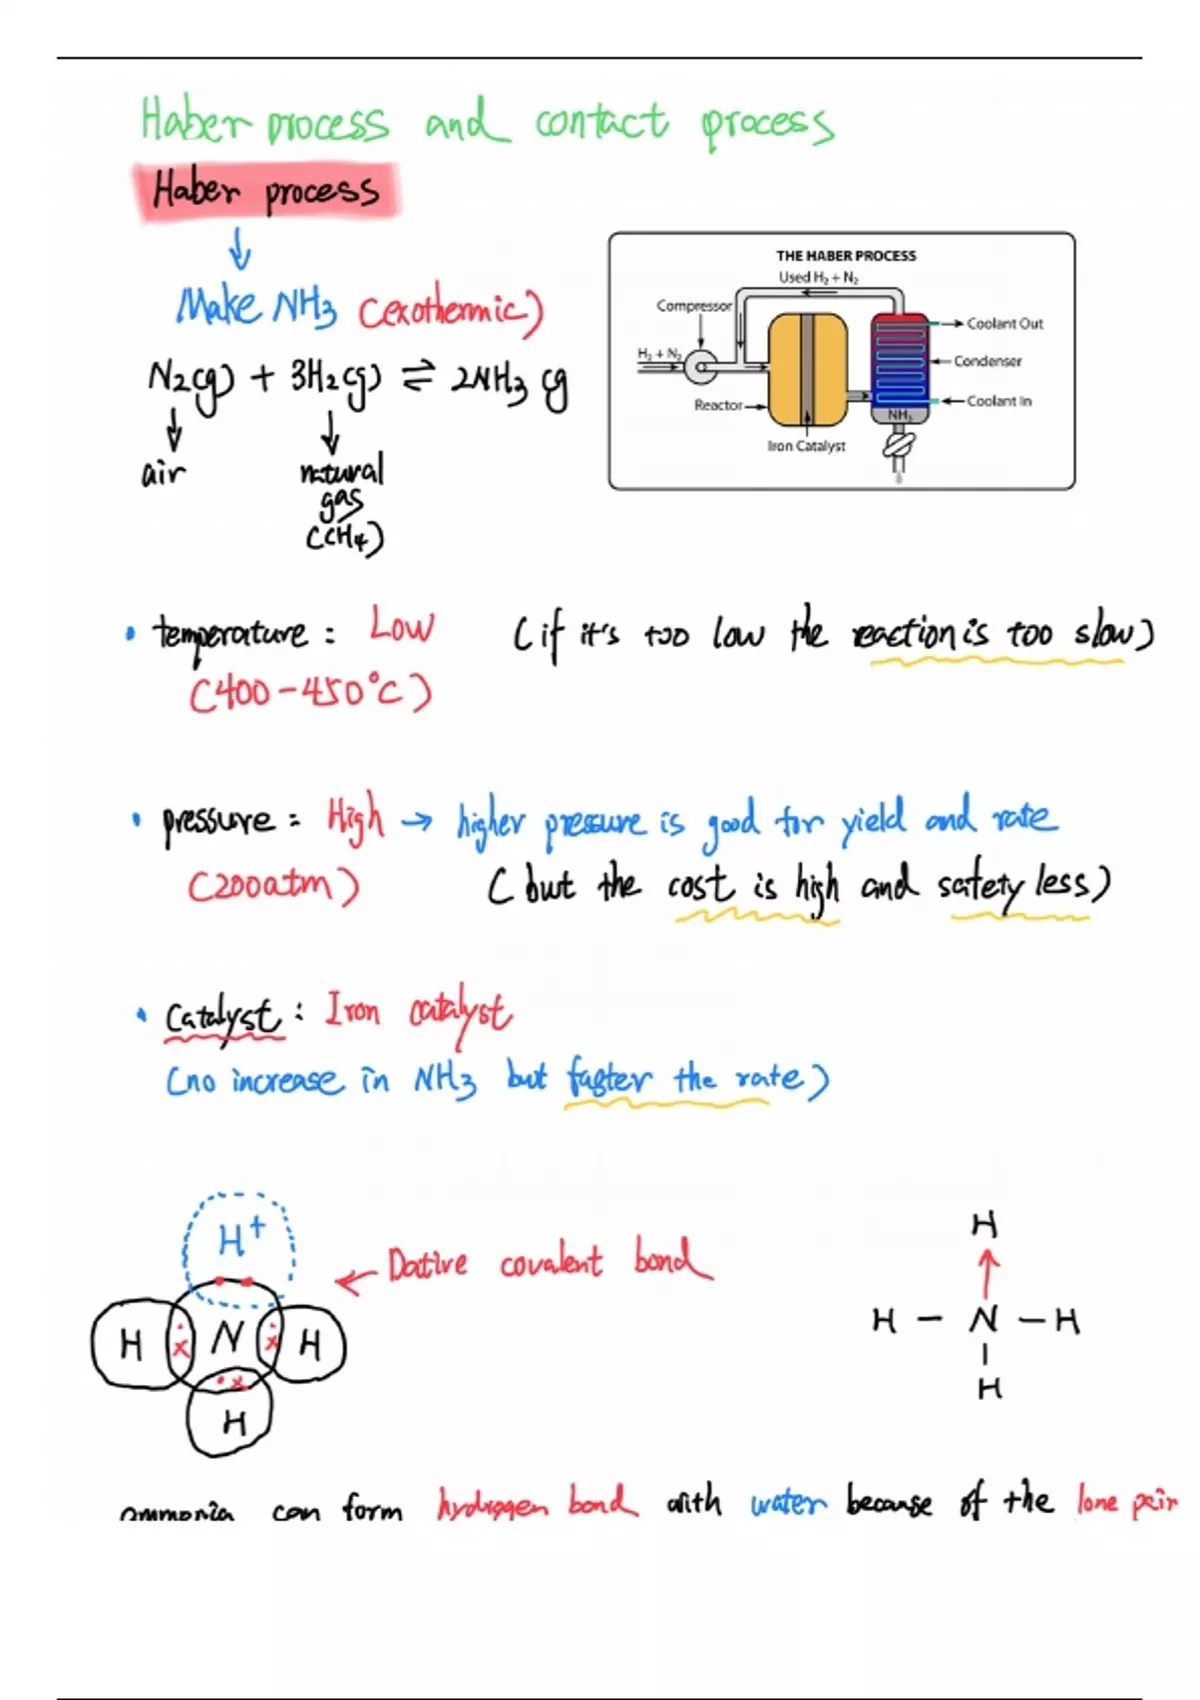 Haber process and contact process
Haber process
Make NH3 (exothermic)
N2(g) + 3H2(g) ⇌ 2NH3 (g
air
natural
gas
(CH4)
THE HABER PROCESS
Used H₂ + N₂
Compressor
H₂ + N₂
Reactor
Iron Catalyst
Coolant Out
Condenser
Coolant In
NH₃
• temperature: Low (if it's too low the reaction is too slow)
(400-450°C)
• pressure: High → higher pressure is good for yield and rate
(200atm) (but the cost is high and safety less)
• Catalyst: Iron catalyst
(no increase in NH3 but faster the rate)
H+
← Dative covalent bond
H N H
H
H
H — N — H
H
ammonia can form hydrogen bond with water because of the lone pair